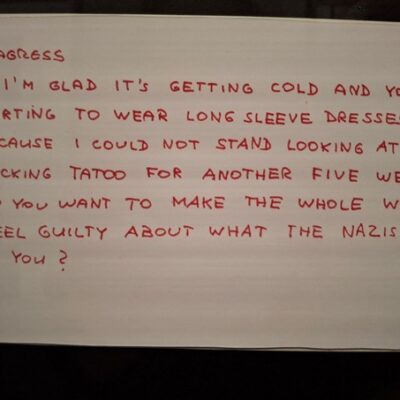 AGRESS
I'M GLAD IT'S GETTING COLD AND YO
RTING TO WEAR LONG SLEEVE DRESSES
CAUSE I COULD NOT STAND LOOKING AT
CKING TATOO FOR ANOTHER FIVE WE
YOU WANT TO MAKE THE WHOLE W
EEL GUILTY ABOUT WHAT THE NAZIS
YOU?